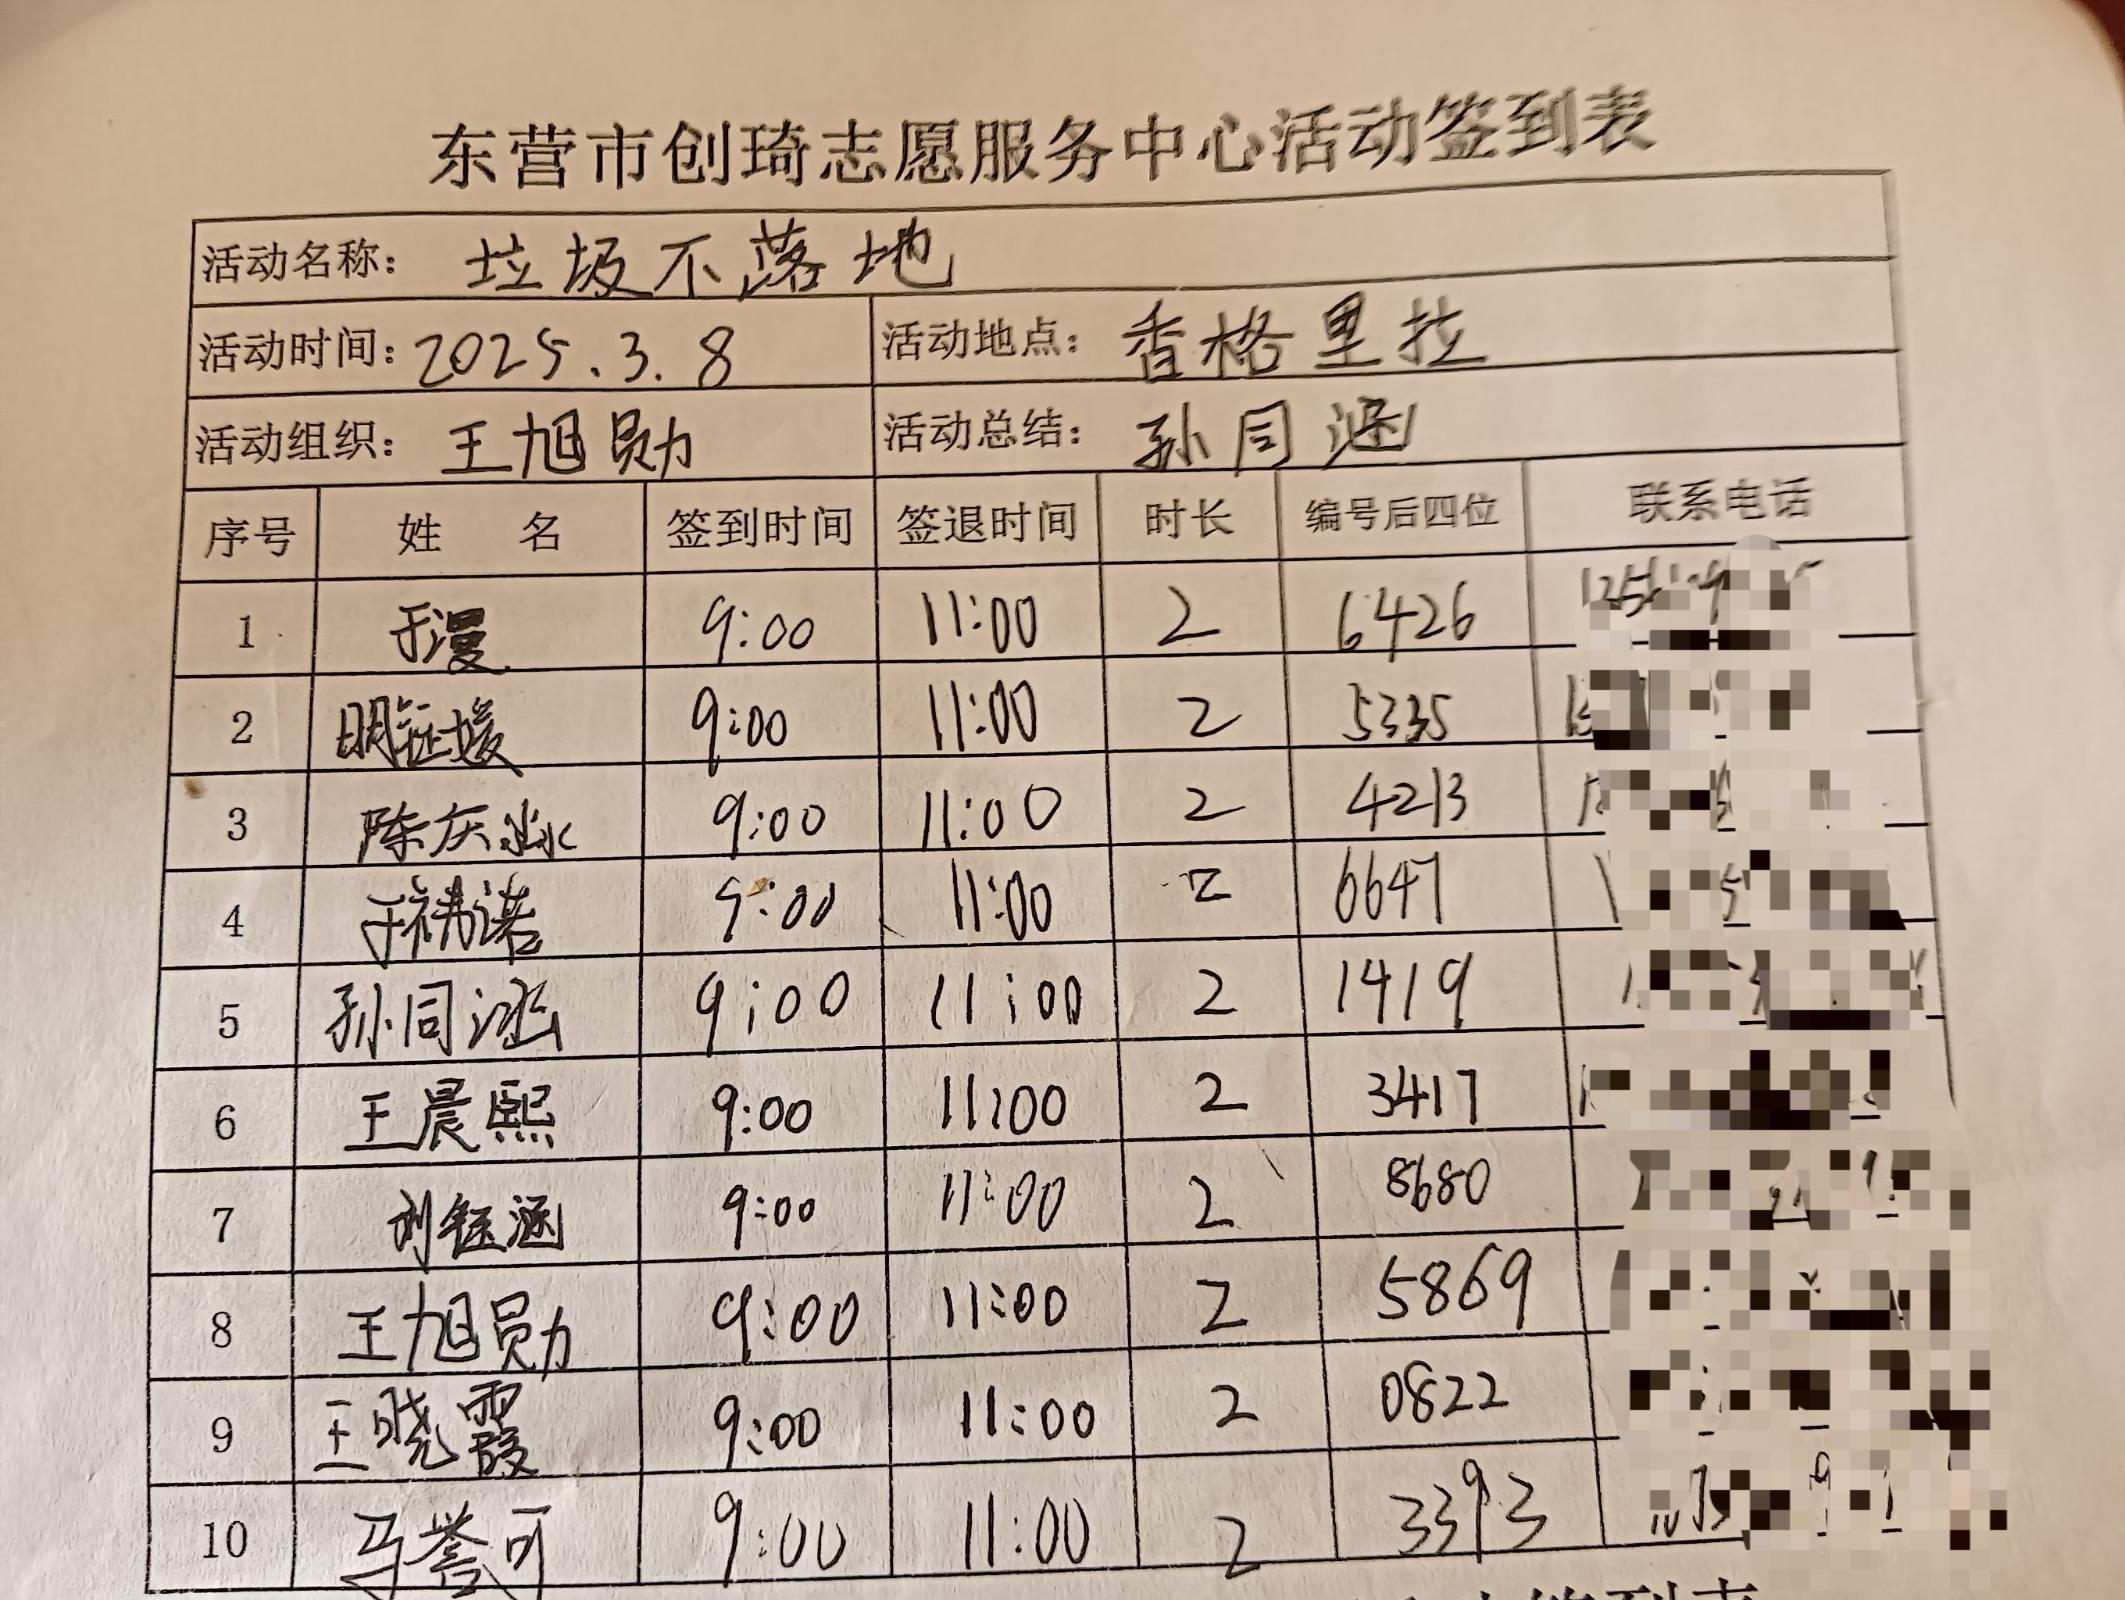 东营市创琦志愿服务中心活动签到表
活动名称: 垃圾不落地
活动时间: 2025.3.8 活动地点: 香格里拉
活动组织: 王旭勋 活动总结: 孙同涵
序号 姓 名 签到时间 签退时间 时长 编号后四位 联系电话
1 于漫 9:00 11:00 2 6426
2 明钲媛 9:00 11:00 2 5335
3 陈庆淼 9:00 11:00 2 4213
4 于祎诺 9:00 11:00 2 6647
5 孙同涵 9:00 11:00 2 1419
6 王晨熙 9:00 11:00 2 3417
7 刘钰涵 9:00 11:00 2 8680
8 王旭勋 9:00 11:00 2 5869
9 王晓霞 9:00 11:00 2 0822
10 马誉可 9:00 11:00 2 3393